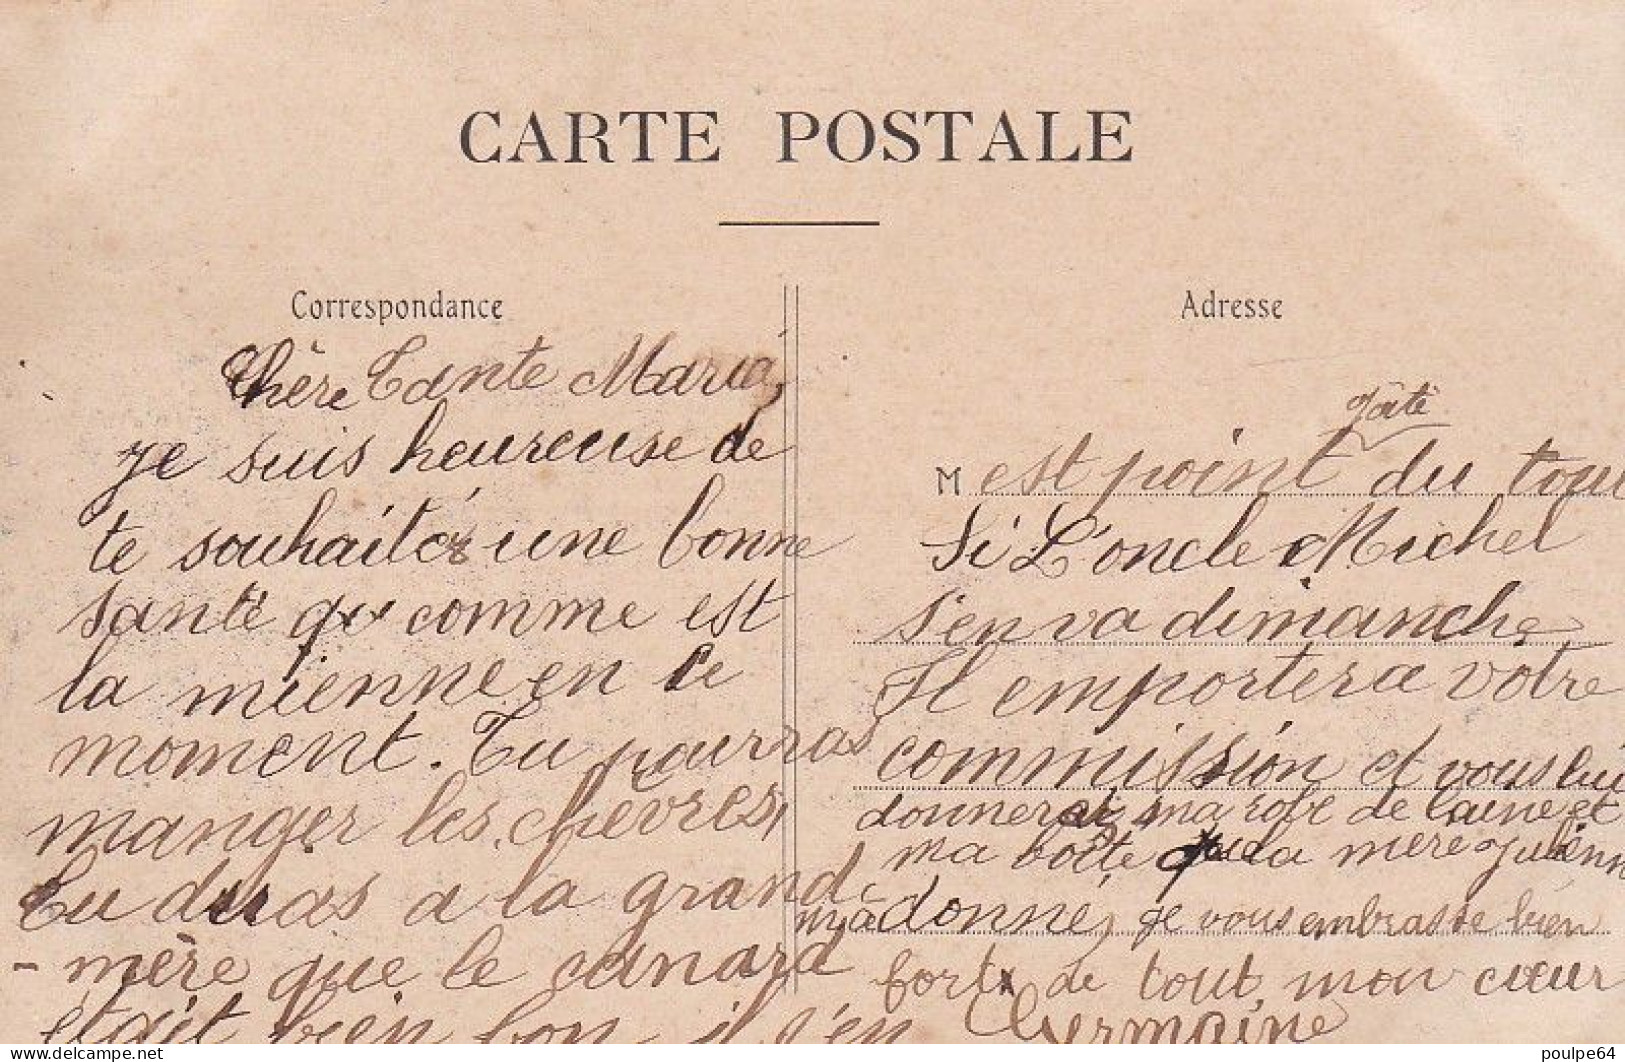 CARTE POSTALE
Correspondance
Chère Tante Maria,
je suis heureuse de
te souhaiter une bonne
santé qu comme est
la mienne en ce
moment. Tu pourras
manger les chèvres,
Tu diras a la grand
- mère que le canard
était bien bon il s'en
Adresse
gâté
M est point du tout
Si L'oncle Michel
s'en va dimanche
Il emportera vôtre
commission et vous lui
donnerai ma robe de laine et
ma boîte que la mère Julienn
m'à donné, je vous embrasse bien
fort de tout mon cœur
Germaine
delcampe.net
poulpe64